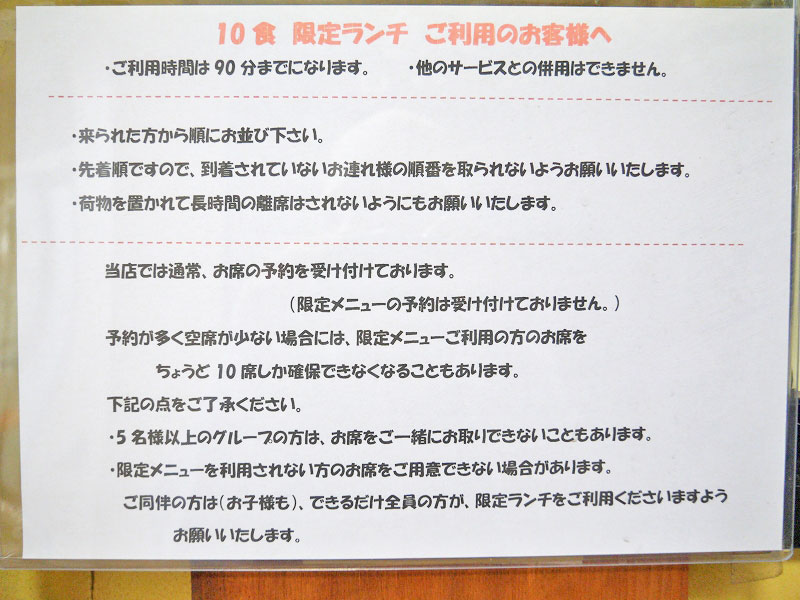 10食 限定ランチ ご利用のお客様へ
・ご利用時間は90分までになります。 ・他のサービスとの併用はできません。
・来られた方から順にお並び下さい。
・先着順ですので、到着されていないお連れ様の順番を取られないようお願いいたします。
・荷物を置かれて長時間の離席はされないようにもお願いいたします。
当店では通常、お席の予約を受け付けております。
(限定メニューの予約は受け付けておりません。)
予約が多く空席が少ない場合には、限定メニューご利用の方のお席を
ちょうど10席しか確保できなくなることもあります。
下記の点をご了承ください。
・5名様以上のグループの方は、お席をご一緒にお取りできないこともあります。
・限定メニューを利用されない方のお席をご用意できない場合があります。
ご同伴の方は(お子様も)、できるだけ全員の方が、限定ランチをご利用くださいますよう
お願いいたします。